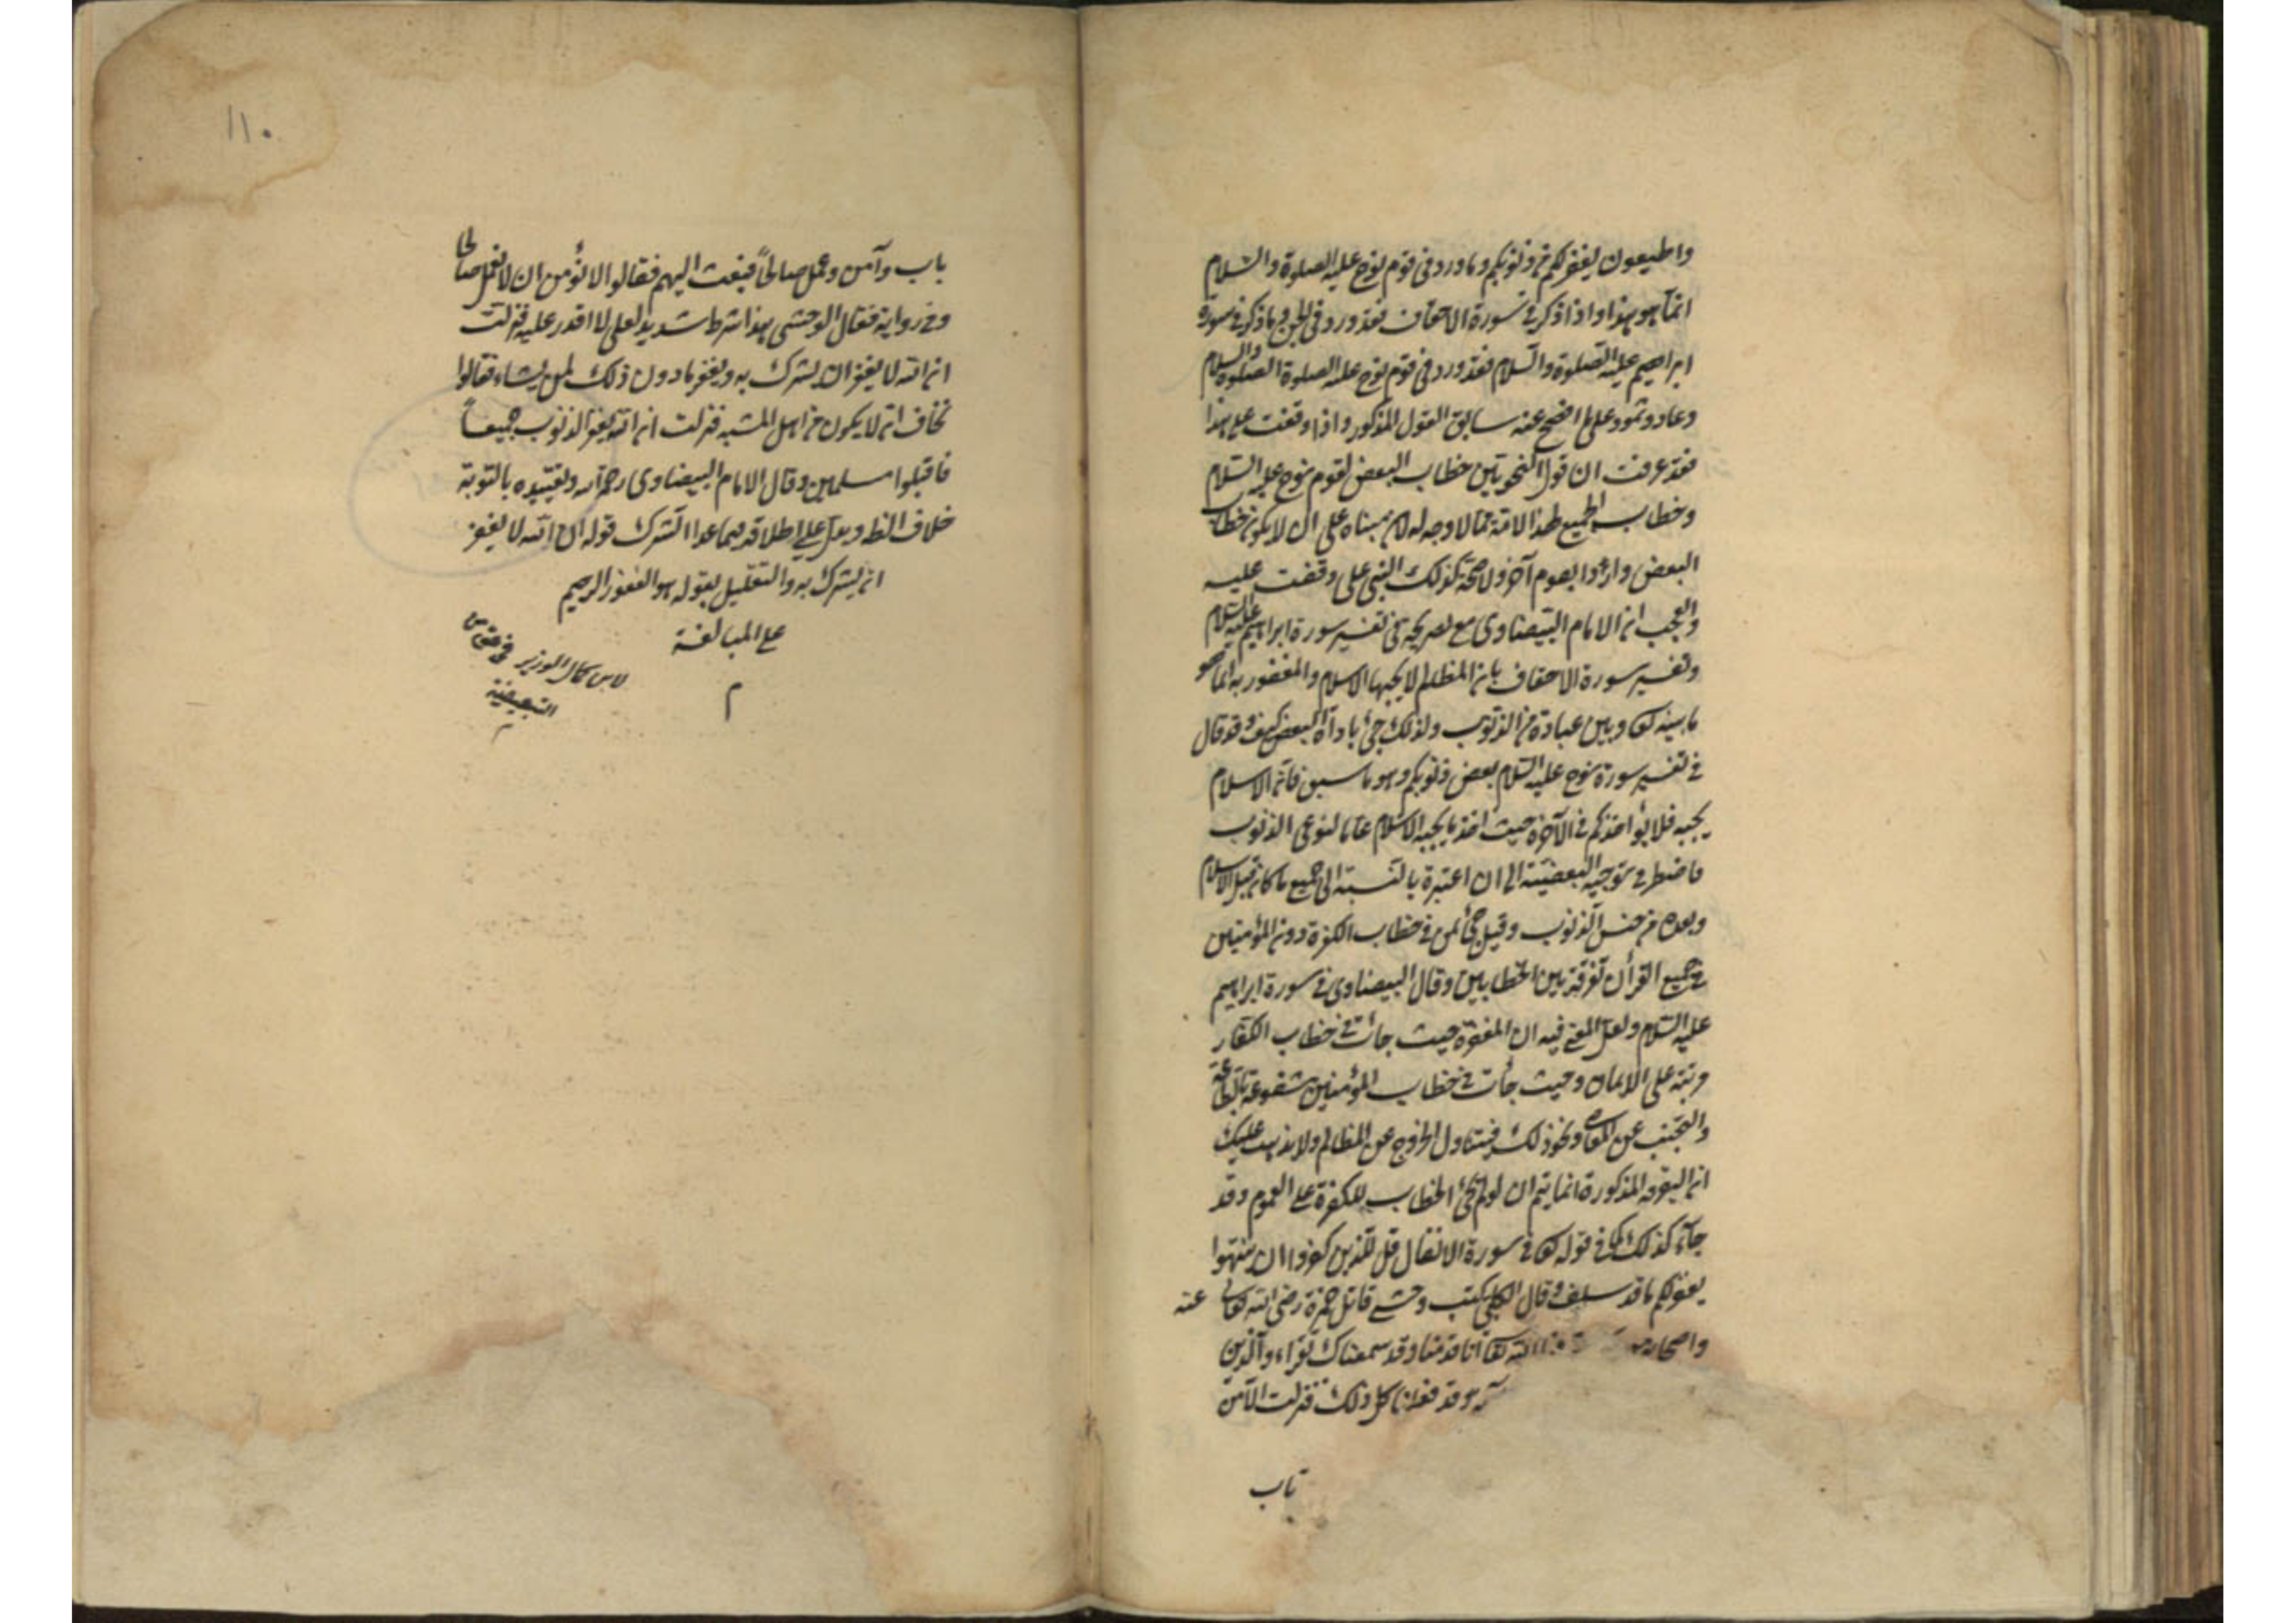 واطيعون يغفر لكم من ذنوبكم وما ورد فى قوم نوح عليه الصلوة والسلام
انما هو هذا واذا ذكر فى سورة الاحقاف فقد ورد فى الجن وما ذكر فى سورة
ابراهيم عليه الصلوة والسلام فقد ورد فى قوم نوح عليه الصلوة الصلوة والسلام
وعاد وثمود على ما افصح عنه سابق القول المذكور واذا وقفت على هذا
فقد عرفت ان قول النحويين خطاب البعض لقوم نوح عليه السلام
وخطاب الجميع لهذا الامة مما لا وجه له لان مبناه على ان لا يكون خطاب
البعض واردا لقوم آخر ولا صحة لذلك النبى على وقفت عليه
والعجب ان الامام البيضاوى مع تصريحه فى تفسير سورة ابراهيم عليه السلام
وتفسير سورة الاحقاف بان المظالم لا يجبها الاسلام والمغفور به انما هو
ما بينه تع وبين عباده من الذنوب ولذلك جئ باداة البعض كيف وقد قال
فى تفسير سورة نوح عليه السلام بعض ذنوبكم وهو ما سبق فان الاسلام
يجبه فلا يؤاخذكم فى الآخرة حيث اخذ ما يجبه الاسلام عاما لنوعى الذنوب
فاضطر فى توجيه البعضية الى ان اعتبره بالنسبة الى جميع ما كان قبل الاسلام
وبعده من جنس الذنوب وقيل جئ بمن فى خطاب الكفرة دون المؤمنين
فى جميع القرأن تفرقة بين الخطابين وقال البيضاوى فى سورة ابراهيم
عليه السلام ولعل المعنى فيه ان المغفرة حيث جائت فى خطاب الكفار
مرتبة على الايمان وحيث جأت فى خطاب المؤمنين مشفوعة بالطاعة
والتجنب عن المعاصى ونحو ذلك فيتناول الخروج عن المظالم ولا يذهب عليك
ان التفرقة المذكورة انما يتم ان لو لم يجئ الخطاب للكفرة على العموم وقد
جآء كذلك كما فى قوله تعا فى سورة الانفال قل للذين كفروا ان ينتهوا
يغفر لهم ما قد سلف وقال الكلبى كتب وحشى قاتل حمزة رضى الله تعالى عنه
واصحابه انا قد منا وقد سمعناك تقراء والذين
وقد فعلنا كل ذلك فنزلت الا من
تاب
١١٠
باب وآمن وعمل صالحاً فبعث اليهم فقالوا الا نؤمن ان لا نعمل صالحا
وفى رواية فقال الوحشى هذا شرط شديد لعلى لا اقدر عليه فنزلت
ان الله لا يغفر ان يشرك به ويغفر ما دون ذلك لمن يشاء فقالوا
نخاف ان لا يكون من اهل المشية فنزلت ان الله يغفر الذنوب جميعاً
فاقبلوا مسلمين وقال الامام البيضاوى رحمه الله وتقييده بالتوبة
خلاف الظ ويدل على اطلاقه فيما عدا الشرك قوله ان الله لا يغفر
ان يشرك به والتعليل بقوله هو الغفور الرحيم
على المبالغة
م
لابن كمال الوزير فى من
التبعيضية
م